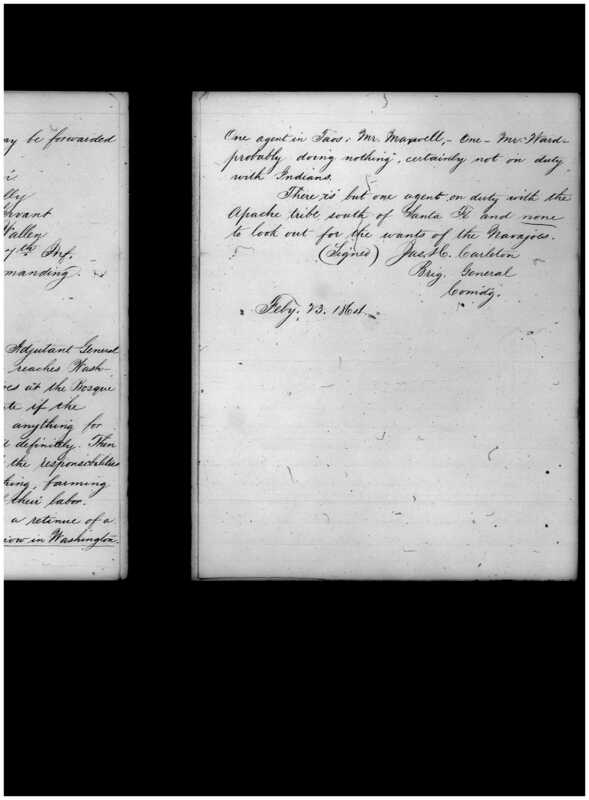 ay be forwarded
lly
Servant
Wallen
7th Inf.
manding.
Adjutant General
reaches Wash-
oes at the Bosque
te if the
anything for
d definitely. Then
the responsibilities
thing, farming
f their labor.
a retinue of a
now in Washington
One agent in Taos, Mr. Maxwell, - One - Mr. Ward -
probably doing nothing, certainly not on duty
with Indians.
There is but one agent on duty with the
Apache tribe south of Santa Fé and none
to look out for the wants of the Navajoes.
(Signed) Jas. H. Carleton
Brig. General
Comdg.
Feby. 23. 1864.